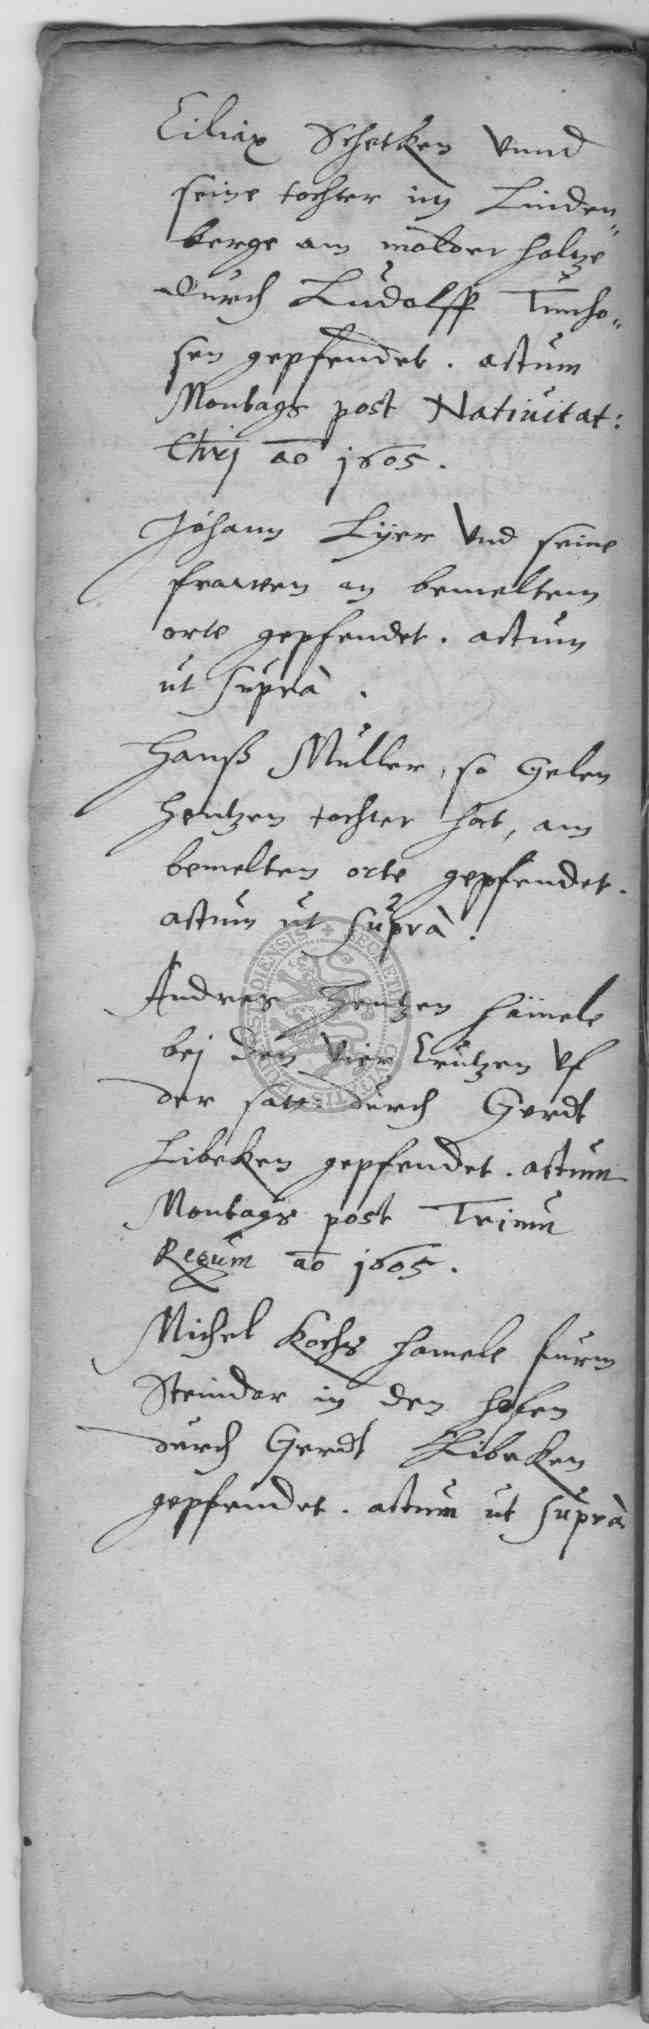 Ciliax Schetken vnnd
seine tochter im Linden„
berge am molder holtze
durch Ludolff Timho„
sen gepfendet. actum
Montags post Natiuitat:
Chrj ao 1605.
Johann Lÿer vnd seine
frawen an bemeltem
orte gepfendet. actum
ut suprà.
Hanß Müller, so Gelen
Hentzen tochter hat, am
bemelten orte gepfendet.
actum ut suprà.
Andres Hentzen hämele
bej den vier Crützen vf
der satt durch Gerdt
Libeken gepfendet. actum
Montags post Trium
Regum ao 1605.
Michel Kochs hamele fürm
Steindor in den hofen
durch Gerdt Libeken
gepfendet. actum ut suprà